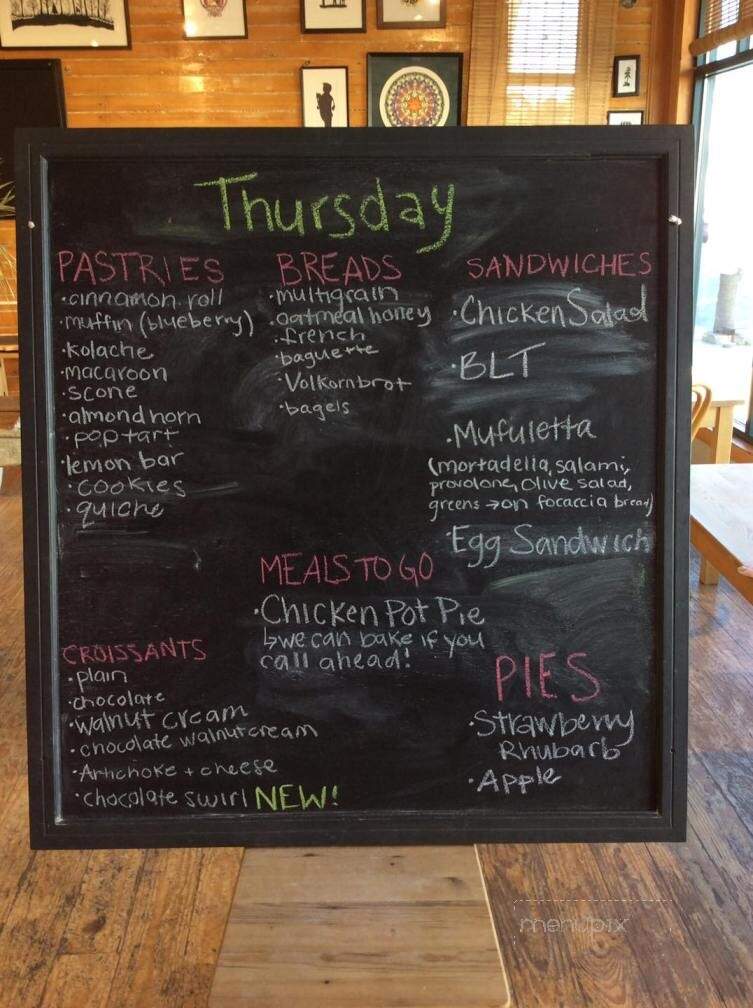 Thursday
PASTRIES
·cinnamon roll
·muffin (blueberry)
·kolache
·macaroon
·scone
·almond horn
·pop tart
·lemon bar
·cookies
·quiche
BREADS
·multigrain
·oatmeal honey
·french
·baguette
·Volkornbrot
·bagels
SANDWICHES
·Chicken Salad
·BLT
·Mufuletta
(mortadella, salami,
provolone, olive salad,
greens →on focaccia bread)
·Egg Sandwich
MEALS TO GO
·Chicken Pot Pie
↳we can bake if you
call ahead!
CROISSANTS
·plain
·chocolate
·walnut cream
·chocolate walnut cream
·Artichoke + cheese
·chocolate swirl NEW!
PIES
·Strawberry
Rhubarb
·Apple
menupix